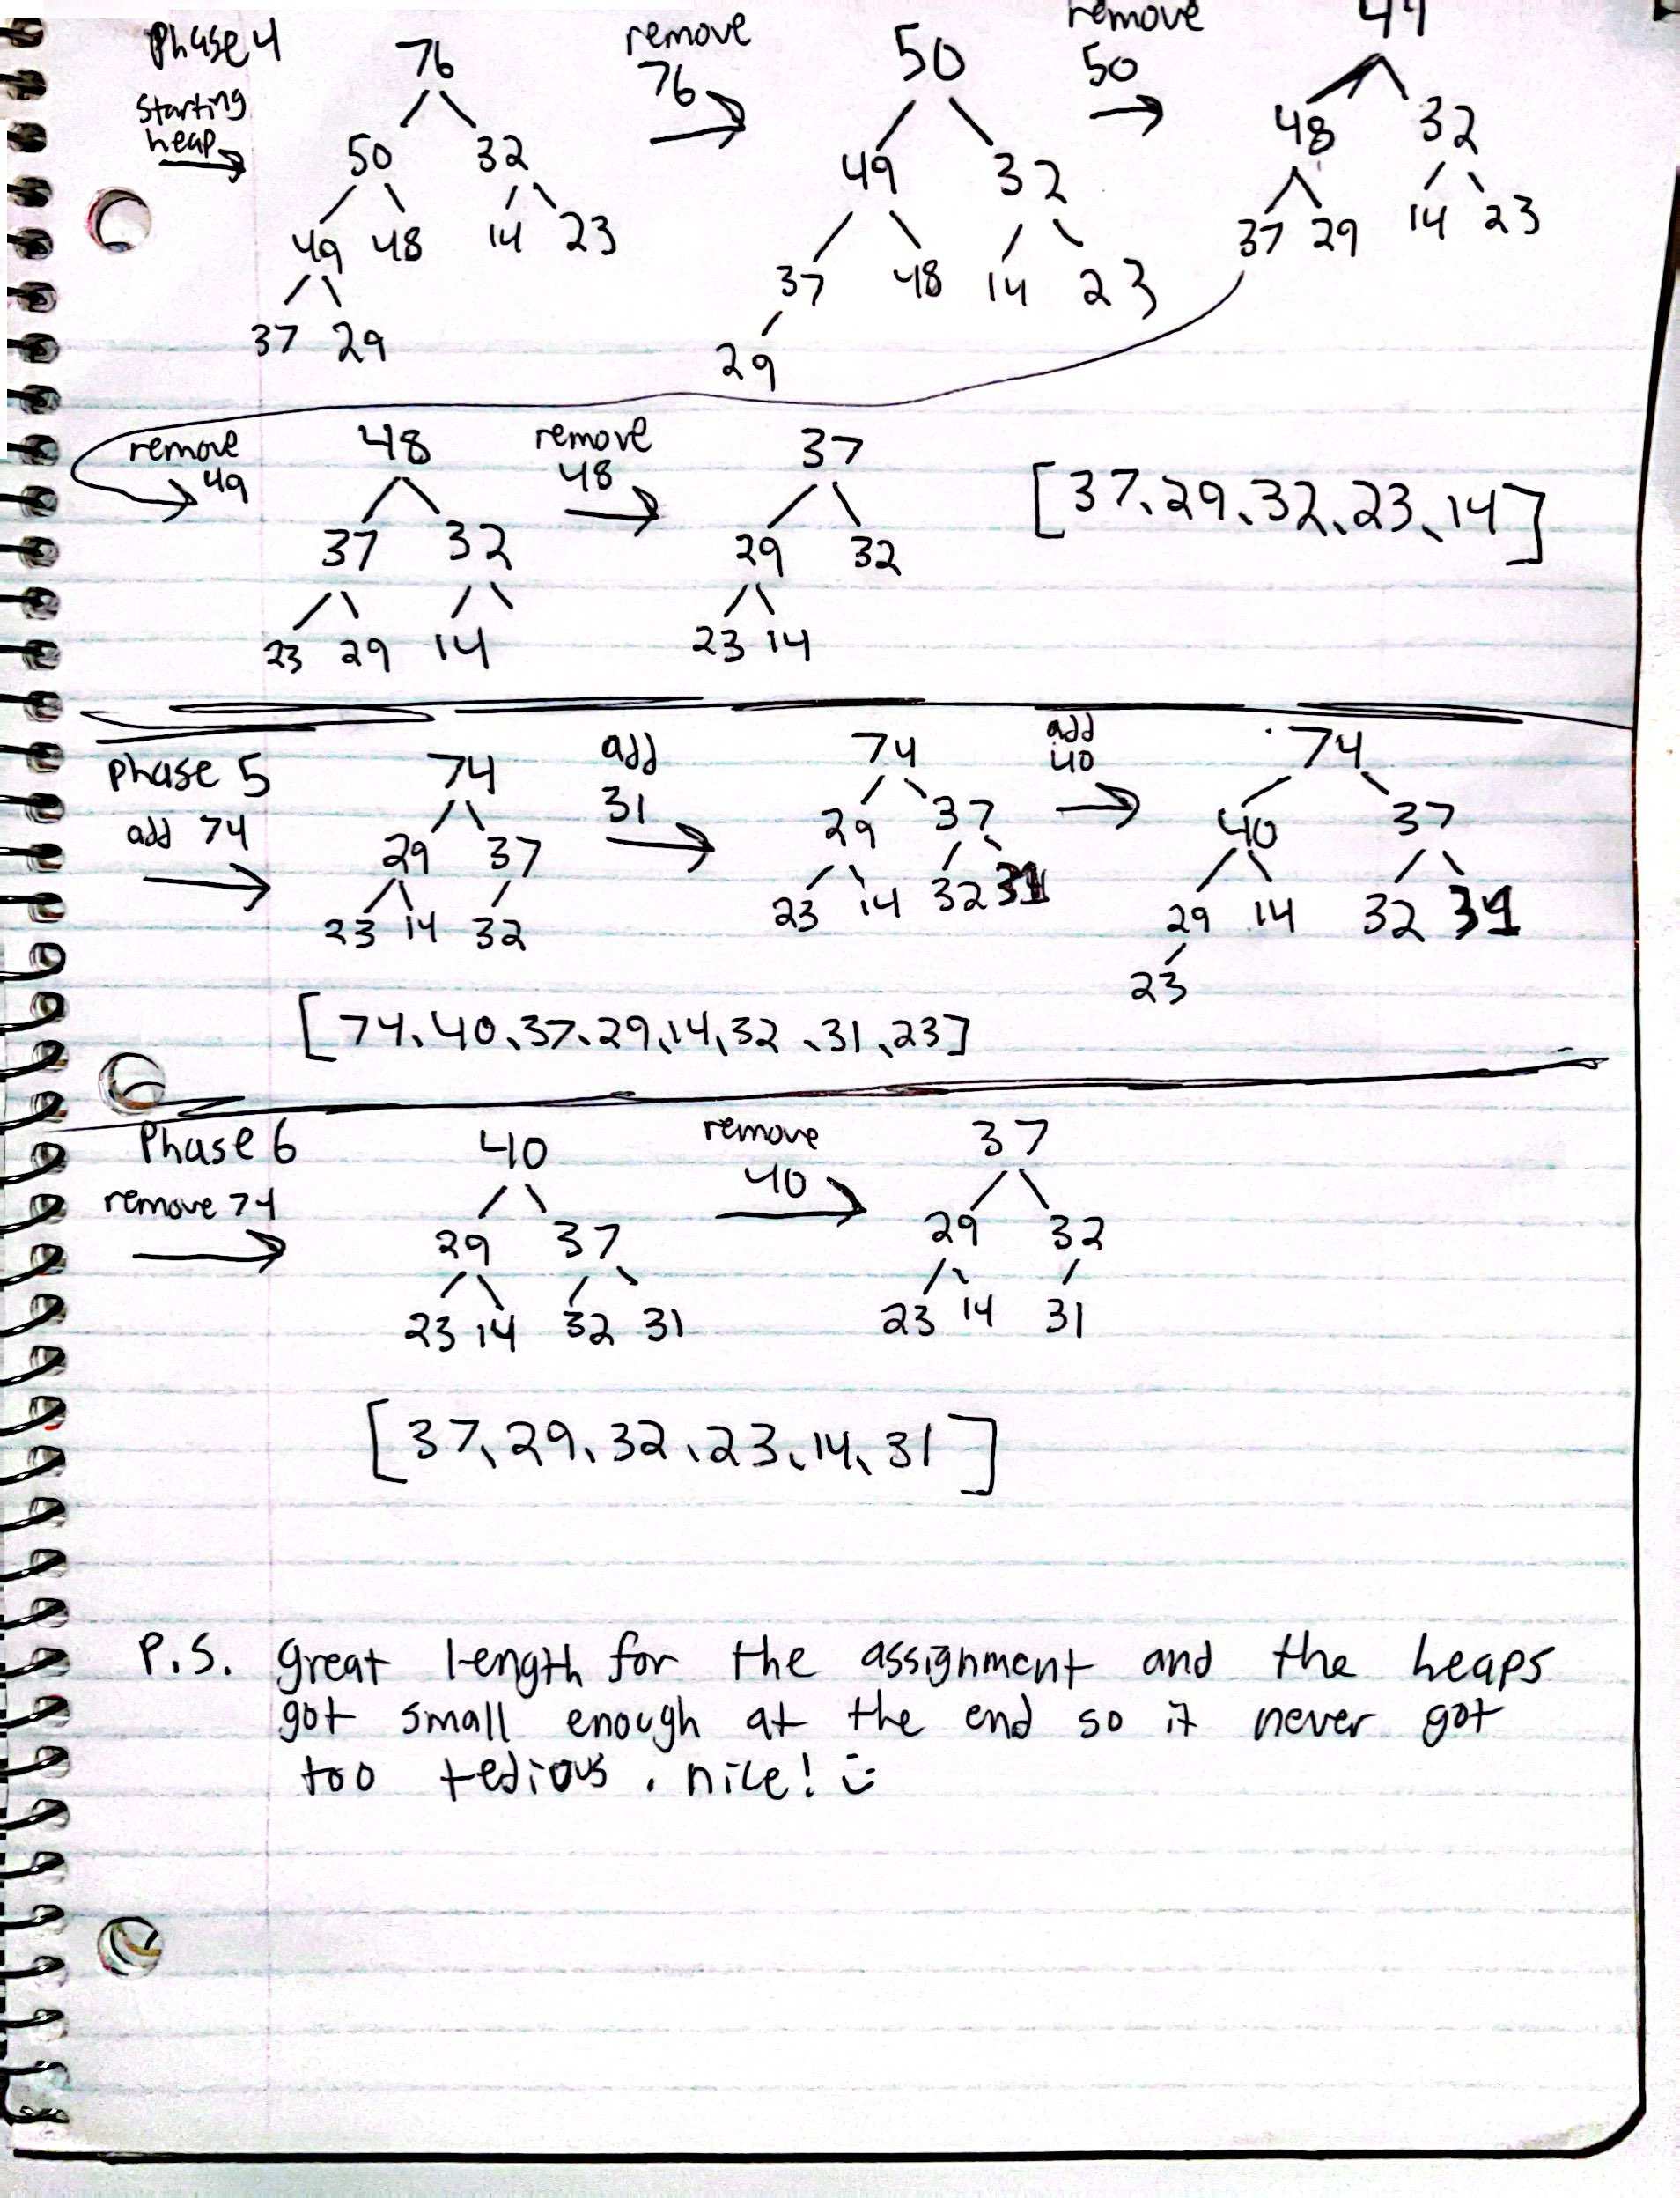 Phase 4
starting
heap
76
50 32
49 48 14 23
37 29
remove
76
50
49 32
37 48 14 23
29
remove
50
49
48 32
37 29 14 23
remove
49
48
37 32
23 29 14
remove
48
37
29 32
23 14
[37, 29, 32, 23, 14]
Phase 5
add 74
74
29 37
23 14 32
add
31
74
29 37
23 14 32 31
add
40
74
40 37
29 14 32 31
23
[74, 40, 37, 29, 14, 32, 31, 23]
Phase 6
remove 74
40
29 37
23 14 32 31
remove
40
37
29 32
23 14 31
[37, 29, 32, 23, 14, 31]
P.S. great length for the assignment and the heaps
got small enough at the end so it never got
too tedious. nice! :)